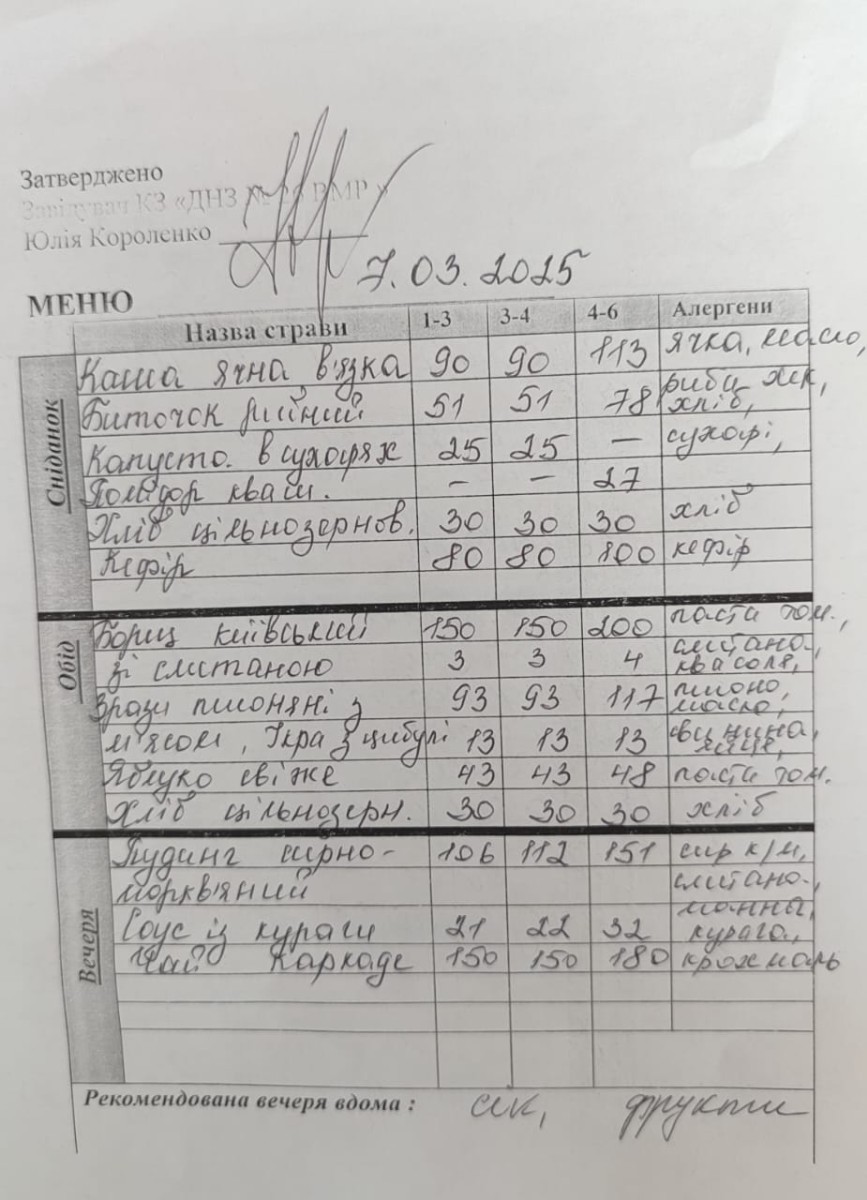 Затверджено
Завідувач КЗ «ДНЗ № РМР»
Юлія Короленко
7.03.2025
МЕНЮ
Назва страви 1-3 3-4 4-6 Алергени
Сніданок
Каша ячна в'язка 90 90 113 ячка, масло,
Биточок рибний 51 51 78 риба, хліб,
Капуста. в сухарях 25 25 — сухарі,
Помідор кваш. - - 27
Хліб цільнозернов. 30 30 30 хліб
Кефір 80 80 100 кефір
Обід
Борщ київський 150 150 200 паста том.,
зі сметаною 3 3 4 сметана., квасоля,
Зрази пшоняні з 93 93 117 пшоно, масло,
м'ясом, Ікра з цибулі 13 13 13 свинина, яйце,
Яблуко свіже 43 43 48 паста том.
Хліб цільнозерн. 30 30 30 хліб
Вечеря
Пудинг сирно- 106 112 151 сир к/м,
морквяний сметана.,
манна,
Соус із кураги 21 22 32 курага,
Чай Каркаде 150 150 180 крохмаль
Рекомендована вечеря вдома : сік, фрукти